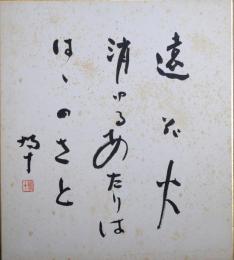 遠花火
消ゆるあたりは
はゝのさと